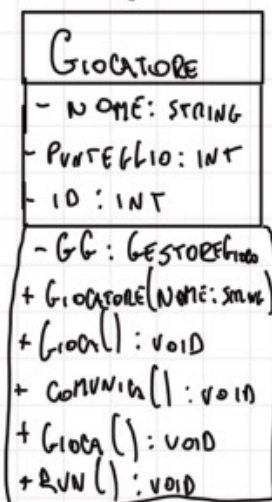 GIOCATORE
- NOME: STRING
- PUNTEGGIO: INT
- ID: INT
- GG: GESTOREGIOCO
+ GIOCATORE(NOME: STRING)
+ GIOCA(): VOID
+ COMUNICA(): VOID
+ GIOCA(): VOID
+ RUN(): VOID